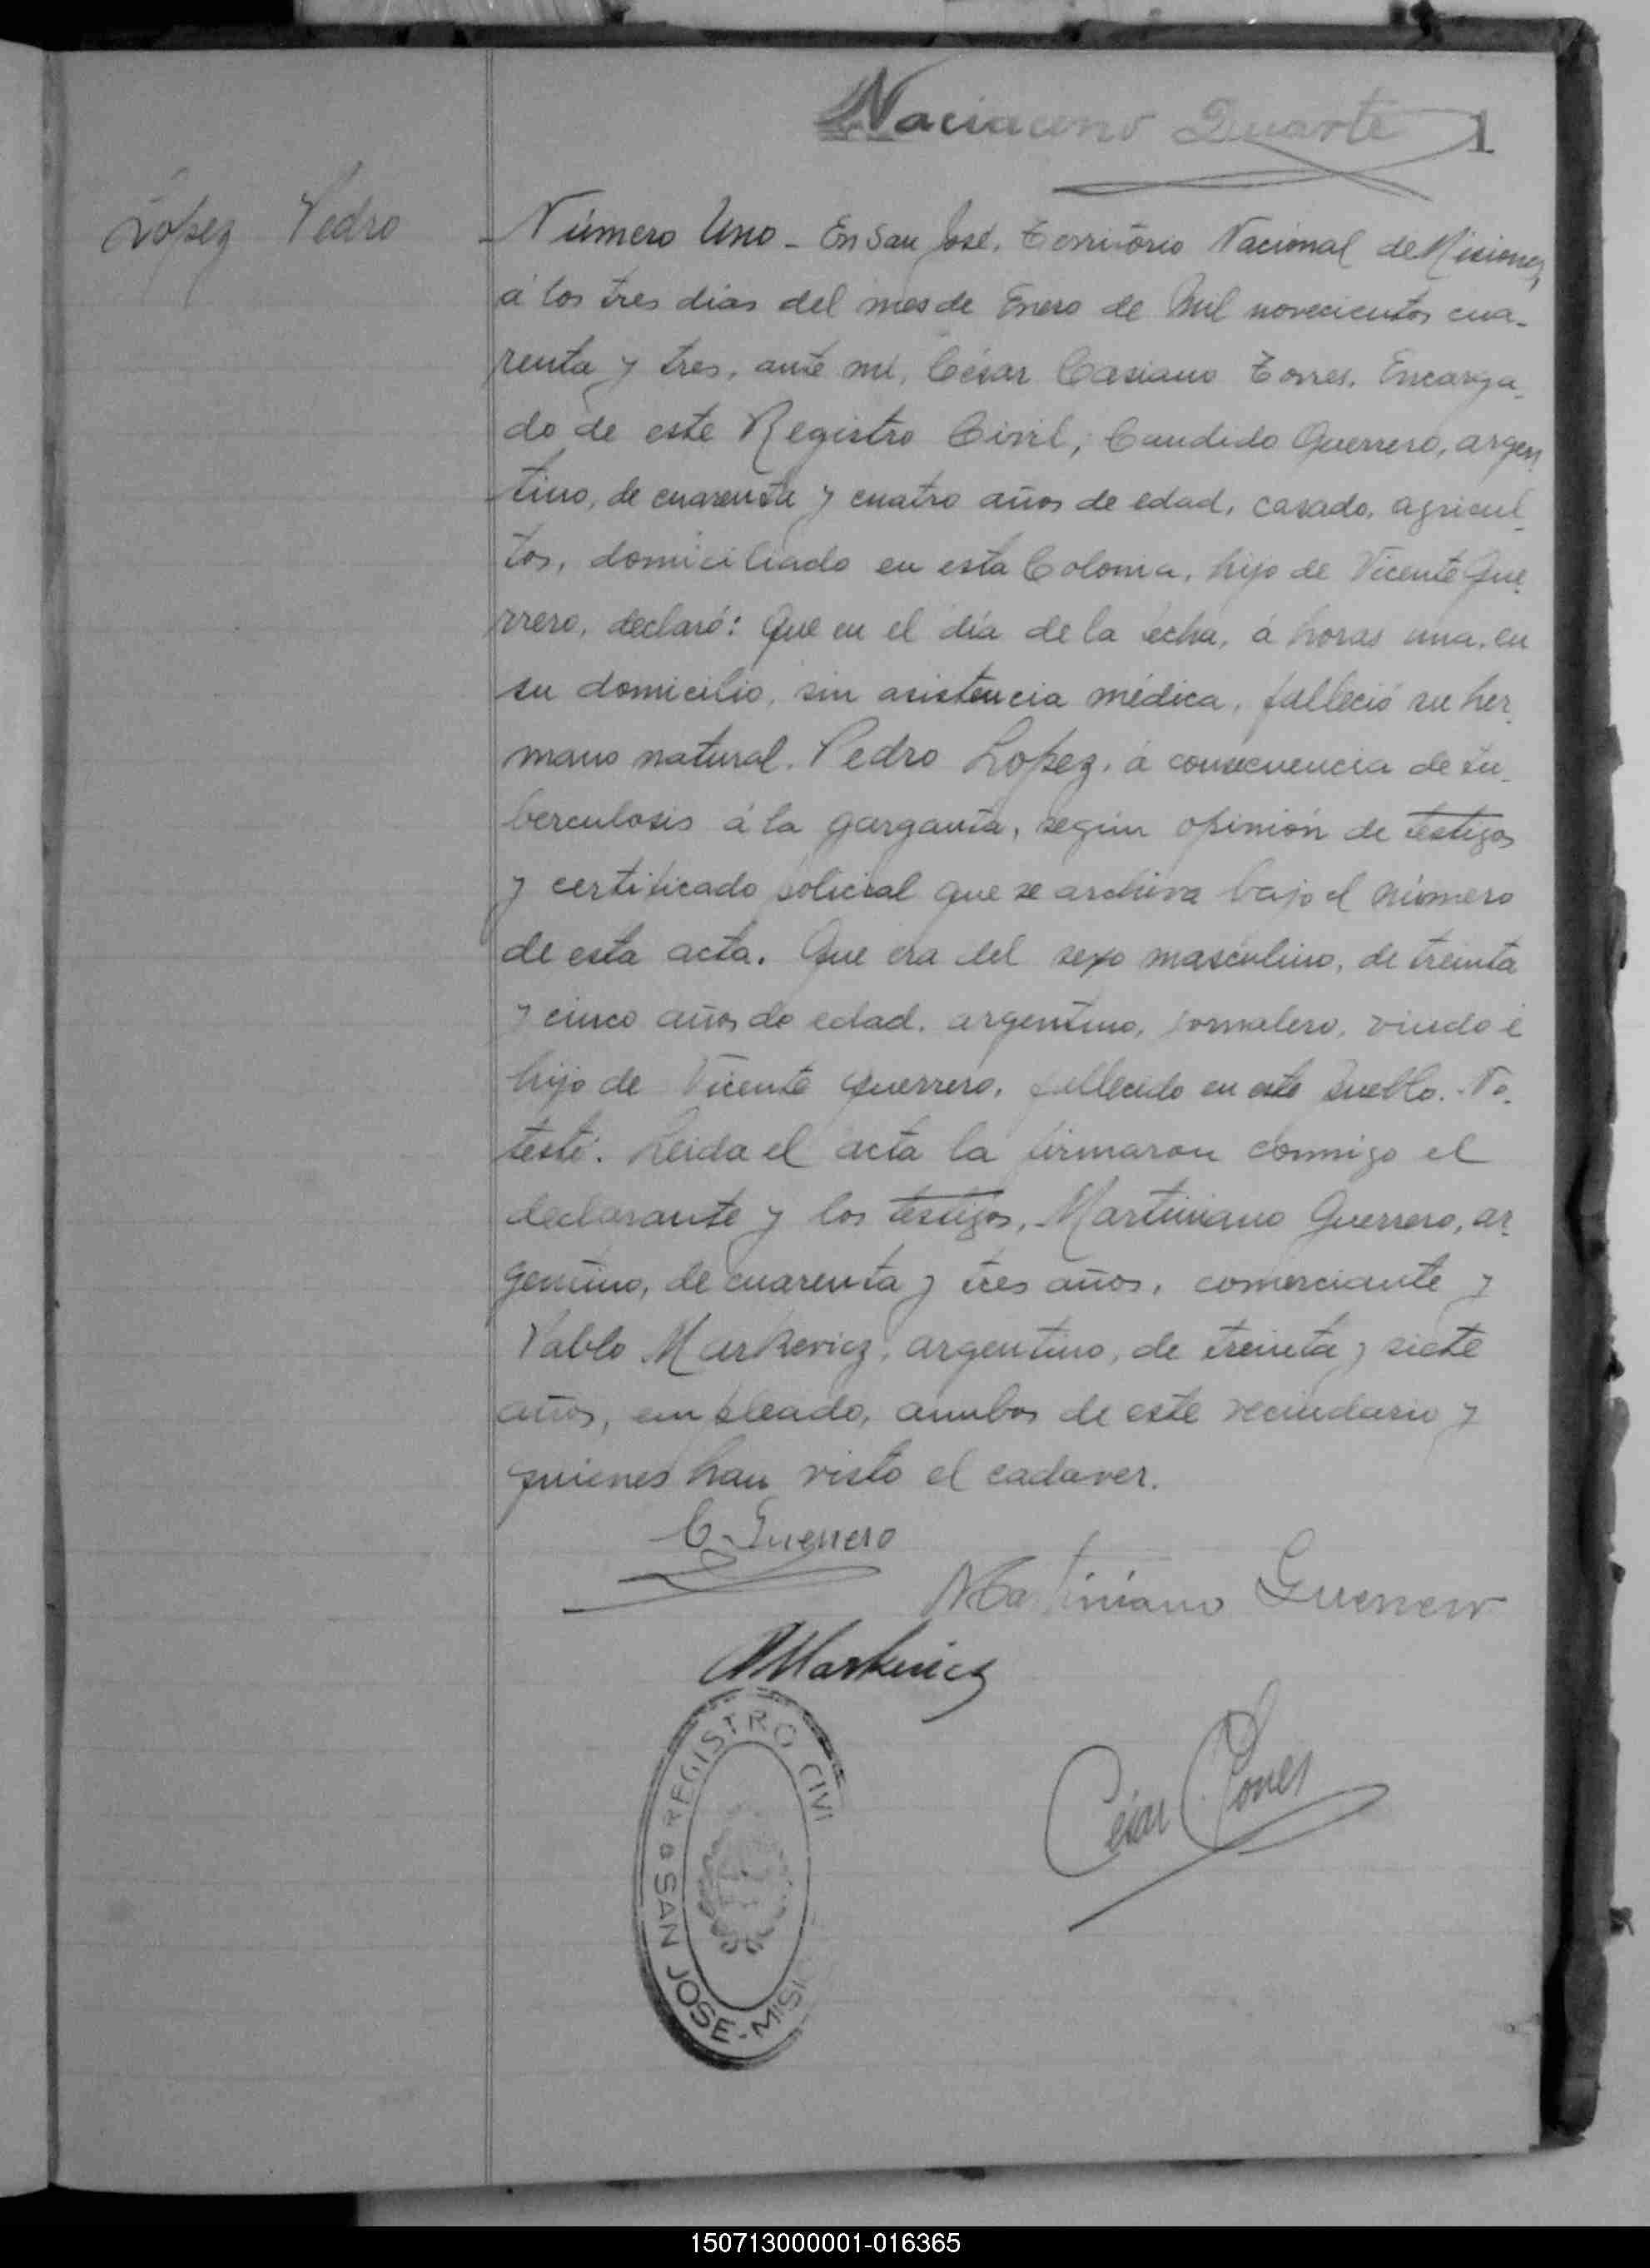 Duarte 1
López Pedro
Número Uno - En San José, Territorio Nacional de Misiones,
á los tres días del mes de Enero de Mil novecientos cua-
renta y tres, ante mí, César Casiano Torres, Encarga-
do de este Registro Civil, Candido Guerrero, argen
tino, de cuarenta y cuatro años de edad, casado, agricul-
tor, domiciliado en esta Colonia, hijo de Vicente Gue-
rrero, declaró: Que en el día de la echa, á horas una, en
su domicilio, sin asistencia médica, falleció su her-
mano natural. Pedro Lopez, á consecuencia de tu-
berculosis á la garganta, según opinión de testigos
y certificado policial que se archiva bajo el número
de esta acta. Que era del sexo masculino, de treinta
y cinco años de edad, argentino, jornalero, viudo é
hijo de Vicente Guerrero, fallecido en este Pueblo. No
testó. Leida el acta la firmaron conmigo el
declarante y los testigos, Martiniano Guerrero, ar-
gentino, de cuarenta y tres años, comerciante y
Pablo Markevicz, argentino, de treinta y siete
años, empleado, ambos de este vecindario y
quienes han visto el cadaver.
C. Guerrero
Martiniano Guerrero
PMarkevicz
César Torres
REGISTRO CIVI
SAN JOSE - MISI
150713000001-016365